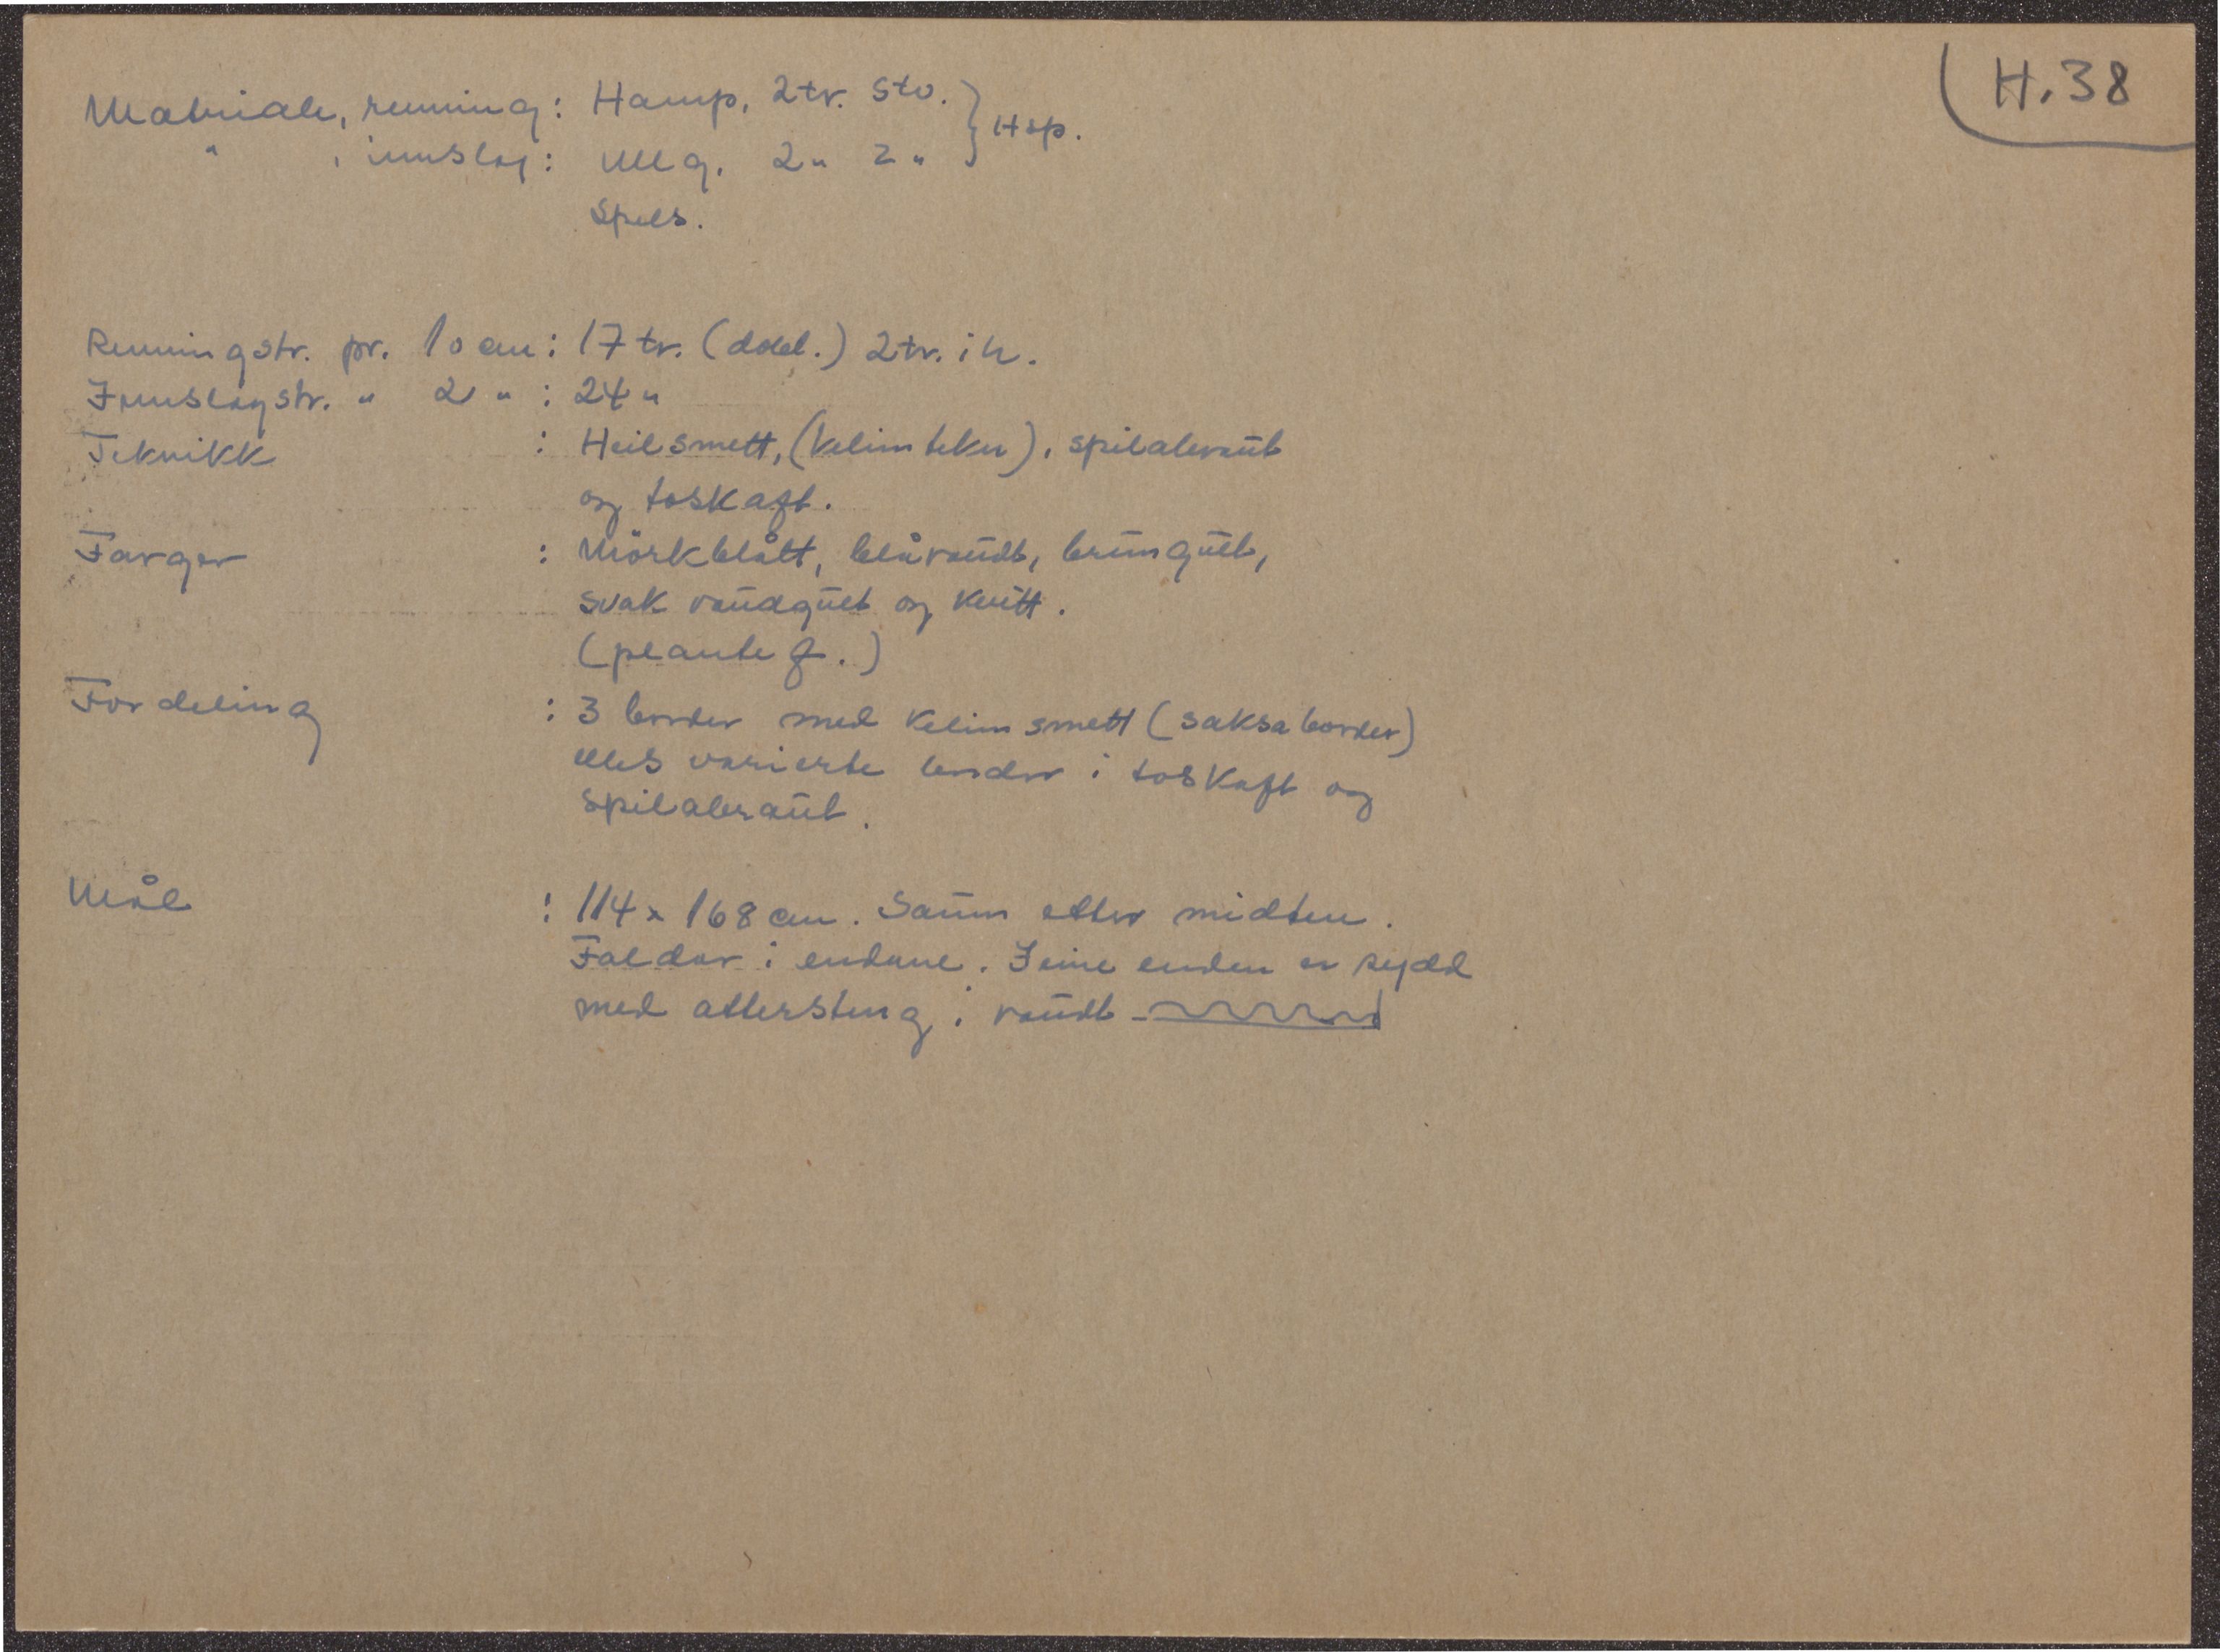 H.38
Matriale, renning: Hamp, 2tr. Stv. } Hsp.
" , innslag: Ullg. 2" Z"
Spels.
Renningstr. pr. 10 cm: 17 tr. (dobl.) 2tr. i h.
Innslagstr. " 2 " : 24 "
Teknikk : Heilsmett, (kelim tekn), spilabraut
og toskaft.
Farger : Mörkblått, blåraudt, brungult,
svak raudgult og kvitt.
(plantef.)
Fordeling : 3 border med kelim smett (saksa border)
elles varierte border i toskaft og
spilabraut.
Mål : 114 x 168 cm. Saum etter midten.
Faldar i endane. I eine enden er sydd
med attersting i raudt